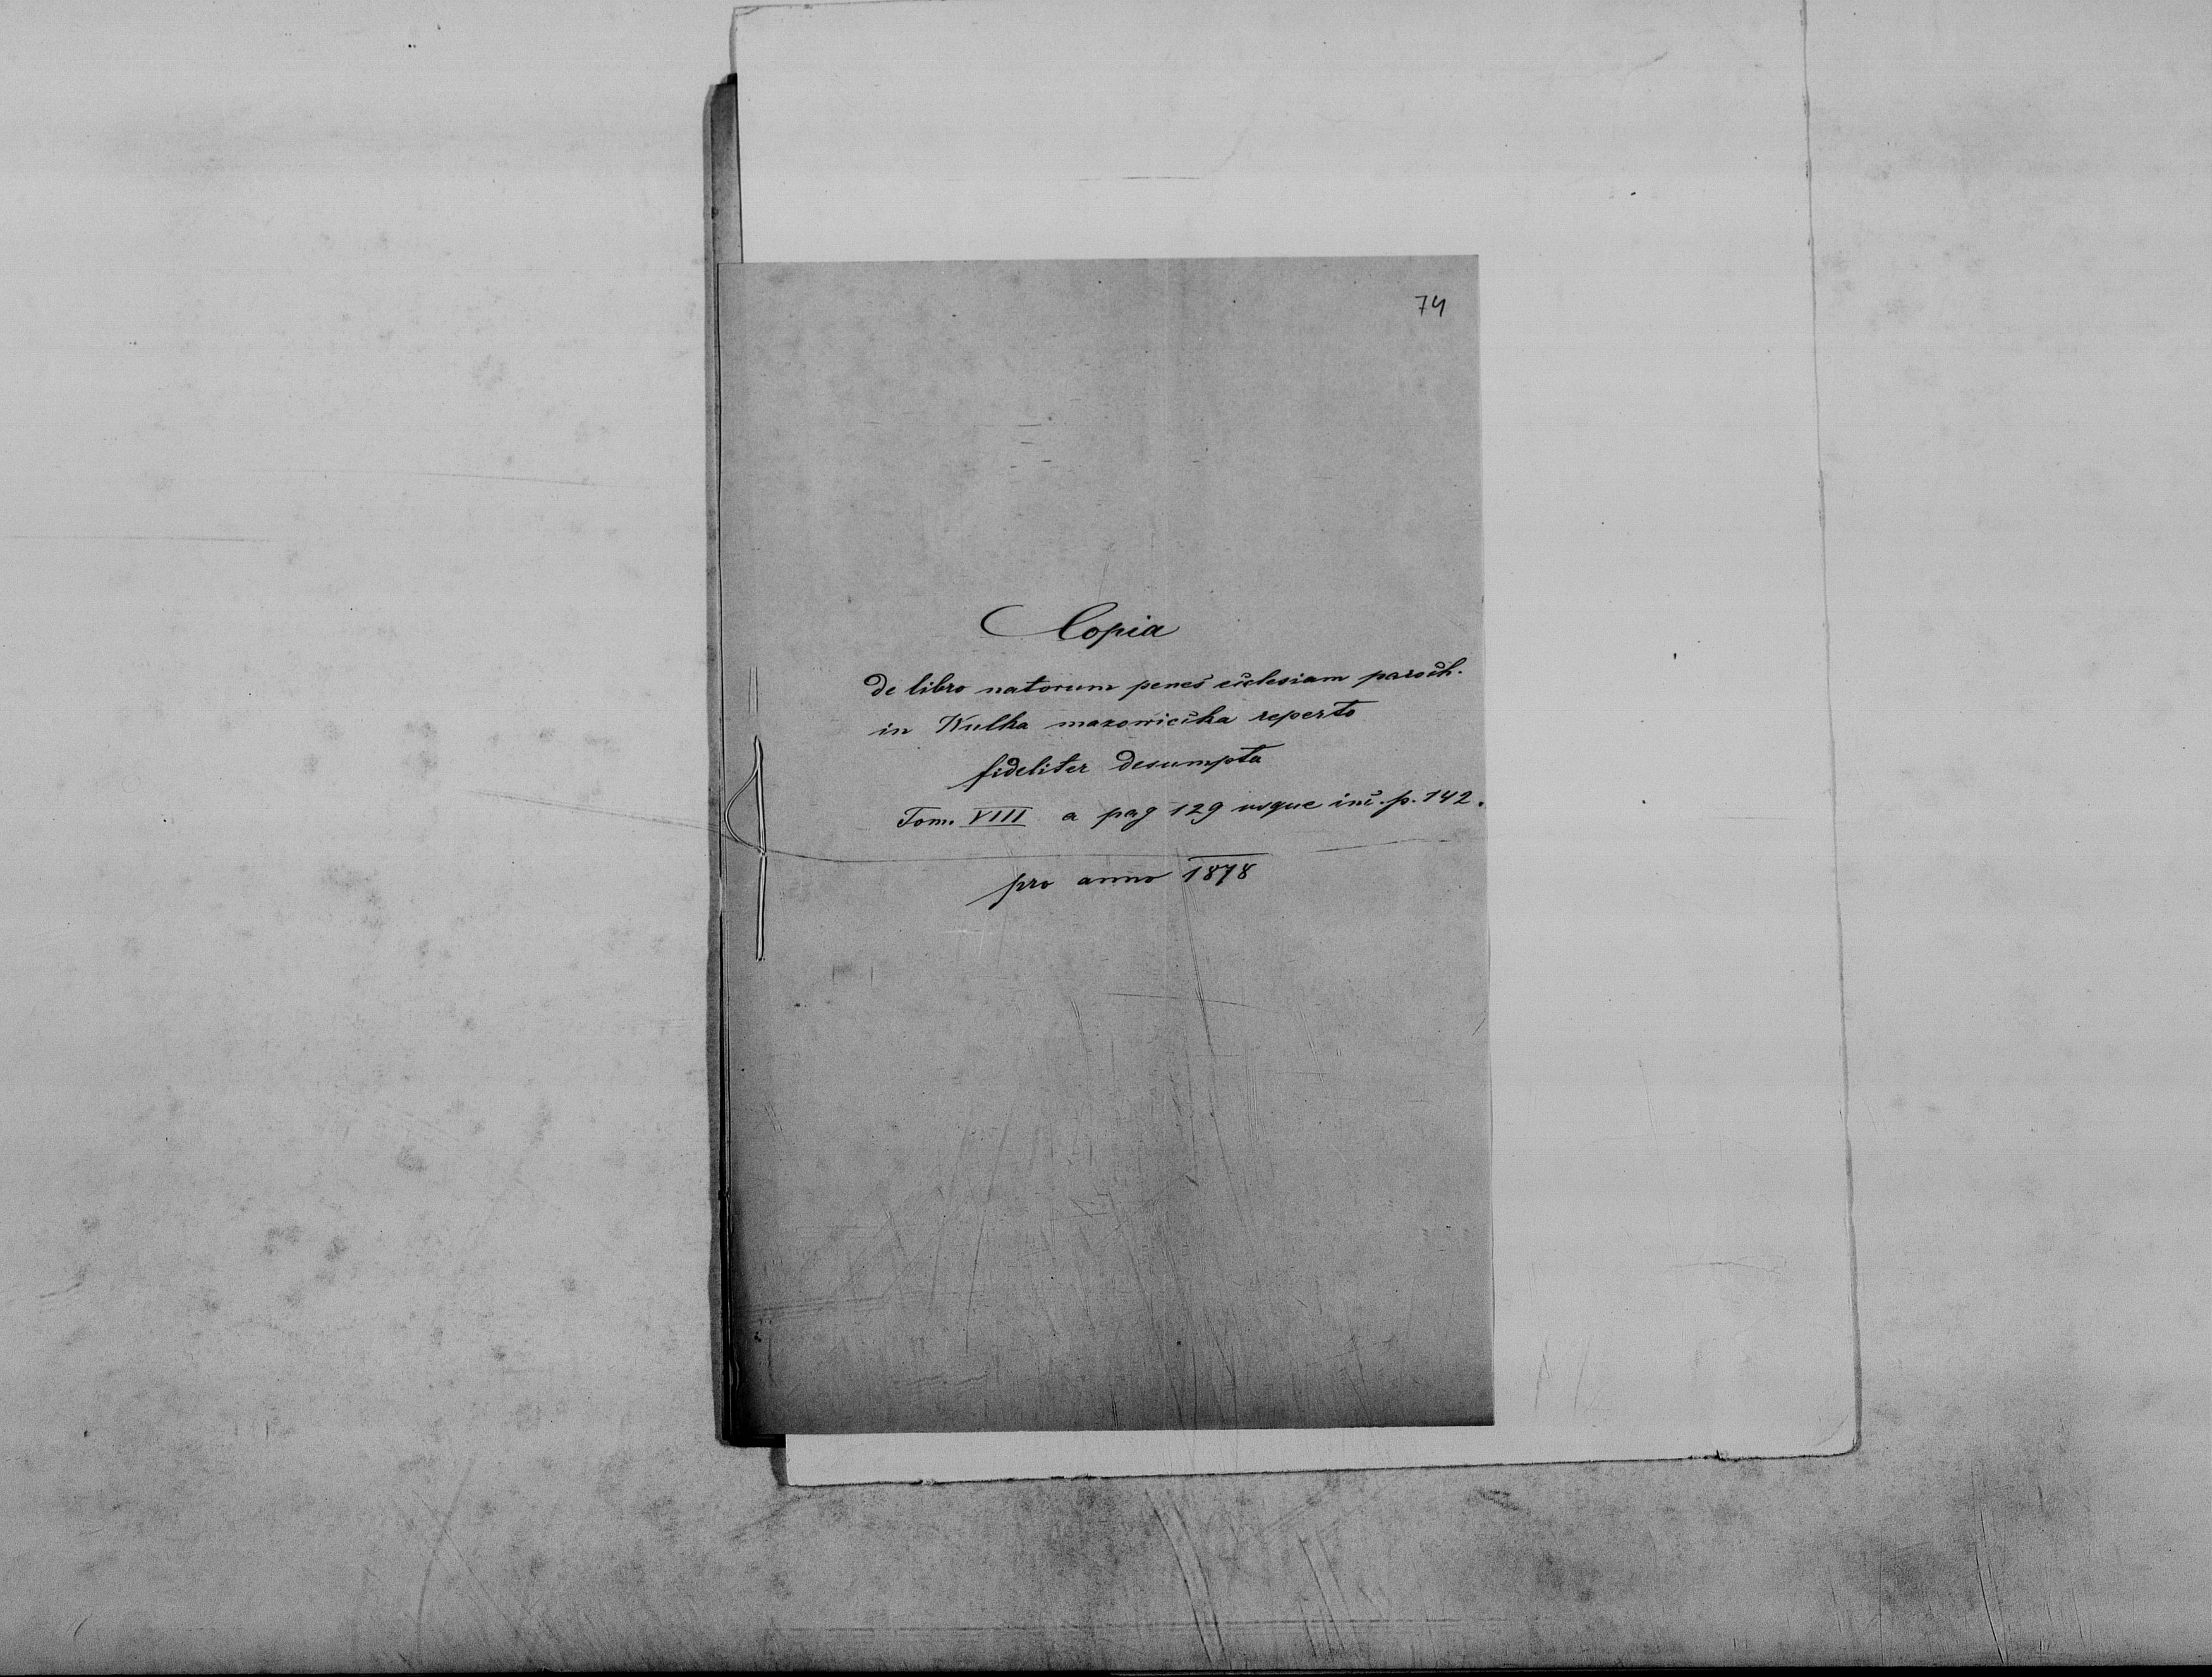 74
Copia
de libro natorum penes ecclesiam paroch.
in Wulka mazowiecka reperto
fideliter desumpta
Tom. VIII a pag 129 usque inc. p. 142.
pro anno 1878